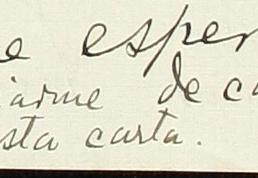 e esper
iarme de ca
sta carta.